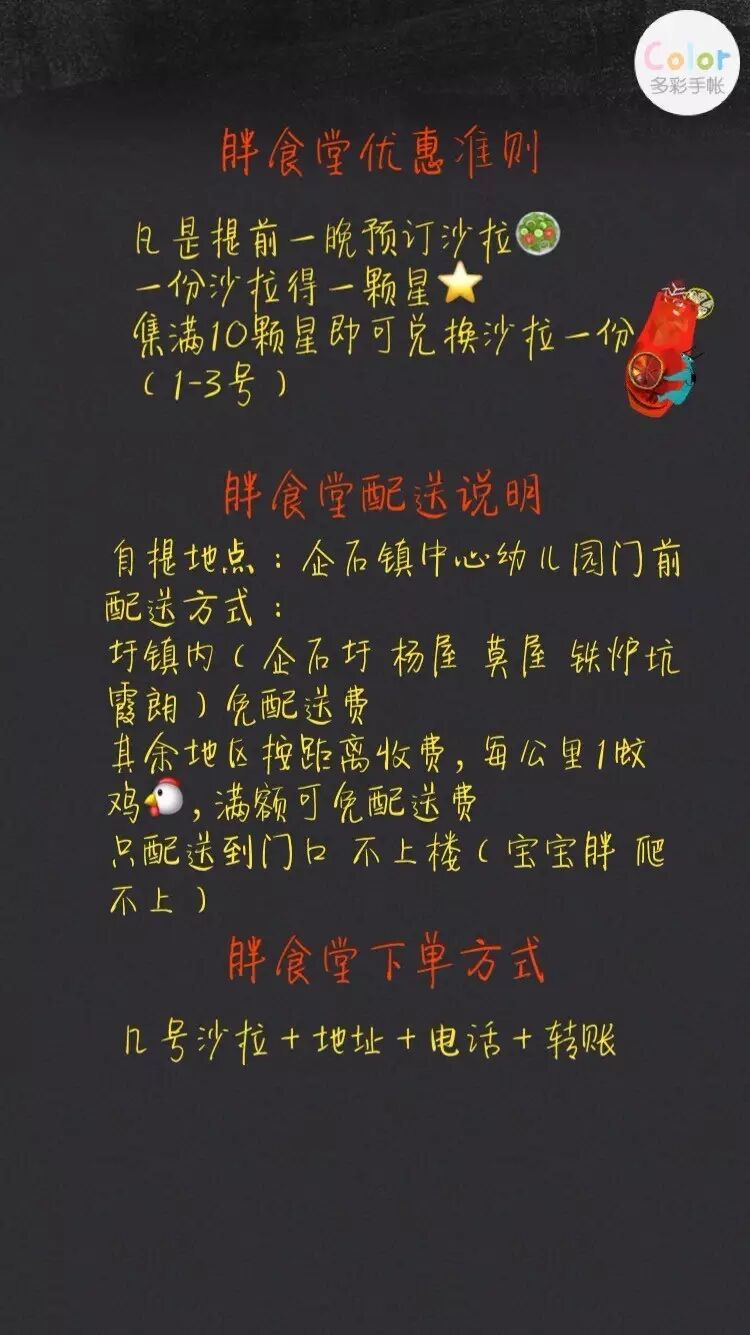 Color
多彩手帐
胖食堂优惠准则
凡是提前一晚预订沙拉🥗
一份沙拉得一颗星⭐
集满10颗星即可兑换沙拉一份
（1-3号）
胖食堂配送说明
自提地点：企石镇中心幼儿园门前
配送方式：
圩镇内（企石圩 杨屋 莫屋 铁炉坑
霞朗）免配送费
其余地区按距离收费，每公里1蚊
鸡🐔，满额可免配送费
只配送到门口 不上楼（宝宝胖 爬
不上）
胖食堂下单方式
几号沙拉＋地址＋电话＋转账